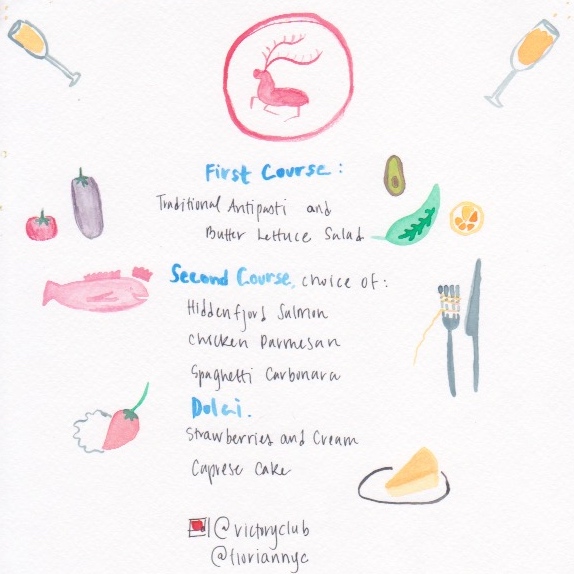 First Course:
Traditional Antipasti and
Butter Lettuce Salad
Second Course, choice of:
Hiddenfjord Salmon
Chicken Parmesan
Spaghetti Carbonara
Dolci.
Strawberries and Cream
Caprese Cake
@victoryclub
@floriannyc